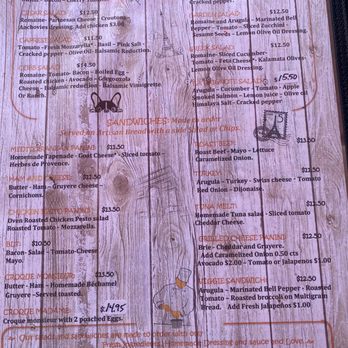 Cracked pepper.
CAESAR SALAD $12.50
Romaine- Parmesan Cheese - Croutons-
Anchovies dressing. Add chicken $3.00
CAPRESE SALAD $11.50
Tomato -Fresh Mozzarella* - Basil - Pink Salt
- Cracked pepper - Olive oil- Balsamic Reduction.
COBB SALAD $14.50
Romaine- Tomato- Bacon - Boiled Egg -
Roasted chicken - Avocado - Gorgonzola
Cheese - Balsamic reduction - Balsamic Vinaigrette
Or Ranch.
GARDEN SALAD $12.50
Romaine and Arugula - Marinated Bell
Pepper - Tomato - Sliced Zucchini -
Sesame Seeds - Lemon Olive Oil Dressing.
GREEK SALAD $12.50
Romaine- Sliced Cucumber-
Tomato - Feta Cheese* - Kalamata Olives-
Lemon Olive Oil Dressing.
$15.50
Arugula - Cucumber - Tomato - Apple
Smoked Salmon - Lemon juice - Olive oil
Himalaya Salt - Cracked pepper.
SANDWICHES: Made to order
Served on Artisan Bread with a side Salad or Chips.
MEDITERRANEAN PANINI: $13.50
Homemade Tapenade - Goat Cheese* - Sliced tomato -
Herbes de Provence.
HAM AND CHEESE: $12.50
Butter - Ham - Gruyere cheese -
Cornichons.
CHICKEN PESTO PANINI: $13.50
Oven Roasted Chicken Pesto salad
Roasted Tomato - Mozzarella.
BLT: $10.50
Bacon- Salad - Tomato-Cheese
Mayo.
CROQUE MONSIEUR: $13.50
Butter - Ham - Homemade Béchamel
Gruyere -Served toasted.
CROQUE MADAME: $14.95
Croque monsieur with 2 poached Eggs.
ROAST BEEF: $13.50
Roast Beef - Mayo - Lettuce
Caramelized Onion.
TURKEY: $13.50
Arugula - Turkey - Swiss cheese - Tomato
Red Onion - Dijonaise.
TUNA MELT: $13.50
Homemade Tuna salad - Sliced tomato
Cheddar Cheese.
GRILLED CHEESE PANINI: $12.50
Brie - Cheddar and Gruyere.
Add Caramelized Onion 0.50 cts
Avocado $2.00 - Tomato or Jalapenos $1.00
VEGGIE SANDWICH: $12.50
Arugula - Marinated Bell Pepper - Roasted
Tomato - Roasted broccoli on Multigrain
Bread. Add Fresh Jalapeños $1.00
Our salads and sandwiches are made to order with our
Fresh ingredients, Homemade Dressing and sauce and Love.